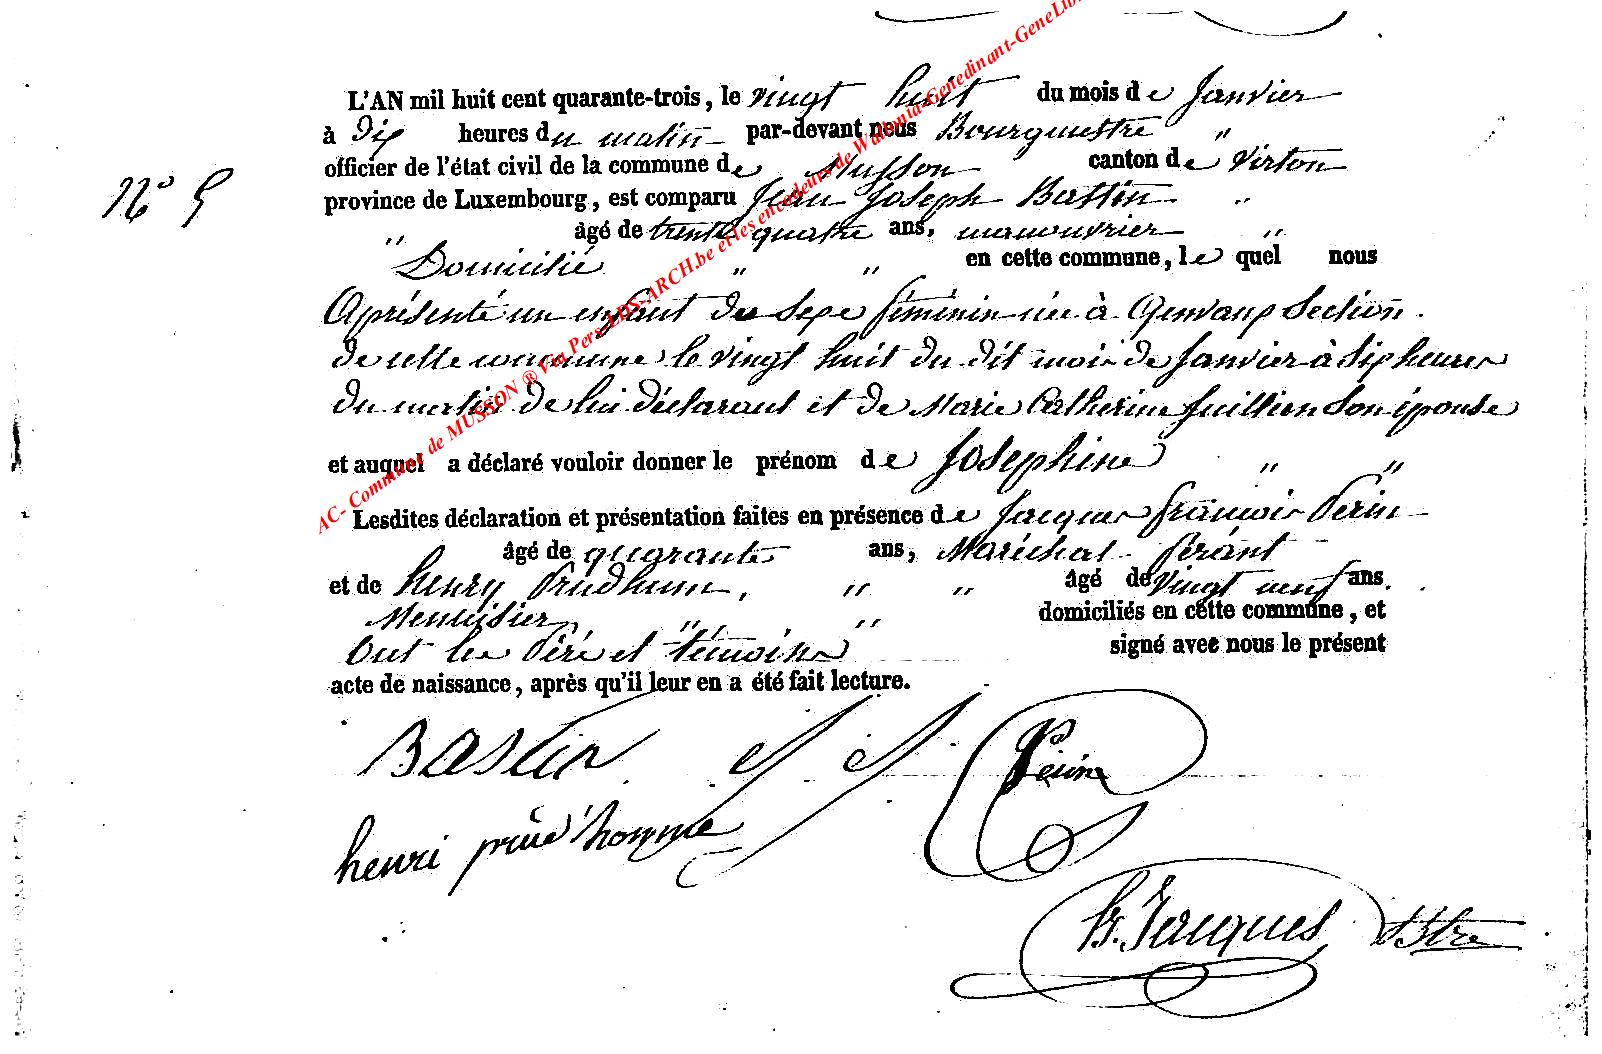 L'AN mil huit cent quarante-trois, le vingt huit du mois de Janvier
à Dix heures du matin par-devant nous Bourgmestre "
officier de l'état civil de la commune de Musson canton de Virton
N° 5
province de Luxembourg, est comparu Jean Joseph Bastin "
" âgé de trente quatre ans, manouvrier "
Domicilié " " en cette commune, le quel nous
Aprésenté un enfant du sexe féminin née à Gennvaux Section
de cette commune le vingt huit du dit mois de Janvier à Six heures
du matin de lui déclarant et de Marie Catherine Juillien Son épouse
et auquel a déclaré vouloir donner le prénom de Josephine " "
Lesdites déclaration et présentation faites en présence de Jacques françois Périn
âgé de quarante ans, Maréchal férant
et de henry Prudhum, " " âgé de Vingt neuf ans.
Menuisier " " domiciliés en cette commune, et
Ont les Péré et témoins signé avec nous le présent
acte de naissance, après qu'il leur en a été fait lecture.
BAStin J J Périn
henri prud'homme
h. Jacques Btre
AC- Commune de MUSSON ® Via Pers-LDS-ARCH.be et les encodeurs de Wallonia-Genedinant-GeneLib